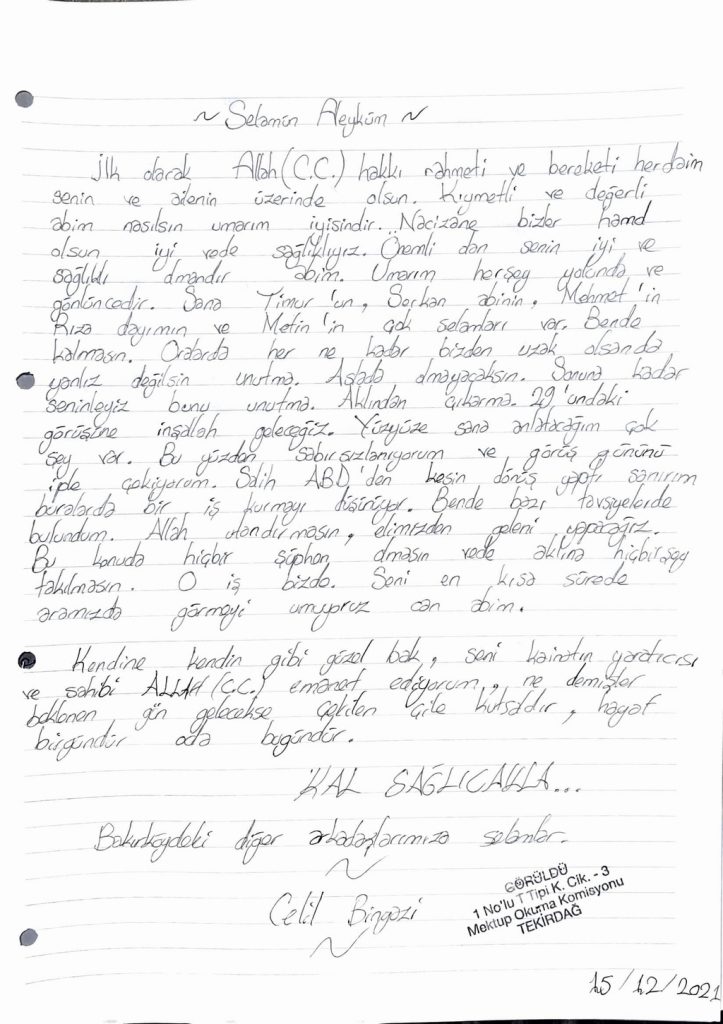 ~ Selamün Aleyküm ~
İlk olarak Allah (C.C.) hakkı rahmeti ve bereketi herdaim
senin ve ailenin üzerinde olsun. Kıymetli ve değerli
abim nasılsın umarım iyisindir. Nacizane bizler hamd
olsun iyi vede sağlıklıyız. Önemli olan senin iyi ve
sağlıklı olmandır abim. Umarım herşey yolunda ve
gönlüncedir. Sana Timur'un, Serkan abinin, Mehmet'in
Rıza dayımın ve Metin'in çok selamları var. Bende
kalmasın. Oralarda her ne kadar bizden uzak olsanda
yanlız değilsin unutma. Aslada olmayacaksın. Sonuna kadar
seninleyiz bunu unutma. Aklından çıkarma. 29'undaki
görüşüne inşallah geleceğiz. Yüzyüze sana anlatacağım çok
şey var. Bu yüzden sabırsızlanıyorum ve görüş gününü
iple çekiyorum. Salih ABD'den kesin dönüş yaptı sanırım
buralarda bir iş kurmayı düşünüyor. Bende bazı tavsiyelerde
bulundum. Allah utandırmasın, elimizden geleni yapacağız.
Bu konuda hiçbir şüphen olmasın vede aklına hiçbirşey
takılmasın. O iş bizde. Seni en kısa sürede
aramızda görmeyi umuyoruz can abim.
Kendine kendin gibi güzel bak, seni kainatın yaratıcısı
ve sahibi ALLAH (C.C.) emanet ediyorum, ne demişler
beklenen gün gelecekse çekilen çile kutsaldır, hayat
birgündür oda bugündür.
KAL SAĞLICAKLA...
Bakırköydeki diğer arkadaşlarımıza selamlar.
~
Celil Bingazi
~
GÖRÜLDÜ
1 No'lu T Tipi K. Cik. - 3
Mektup Okuma Komisyonu
TEKİRDAĞ
15/12/2021